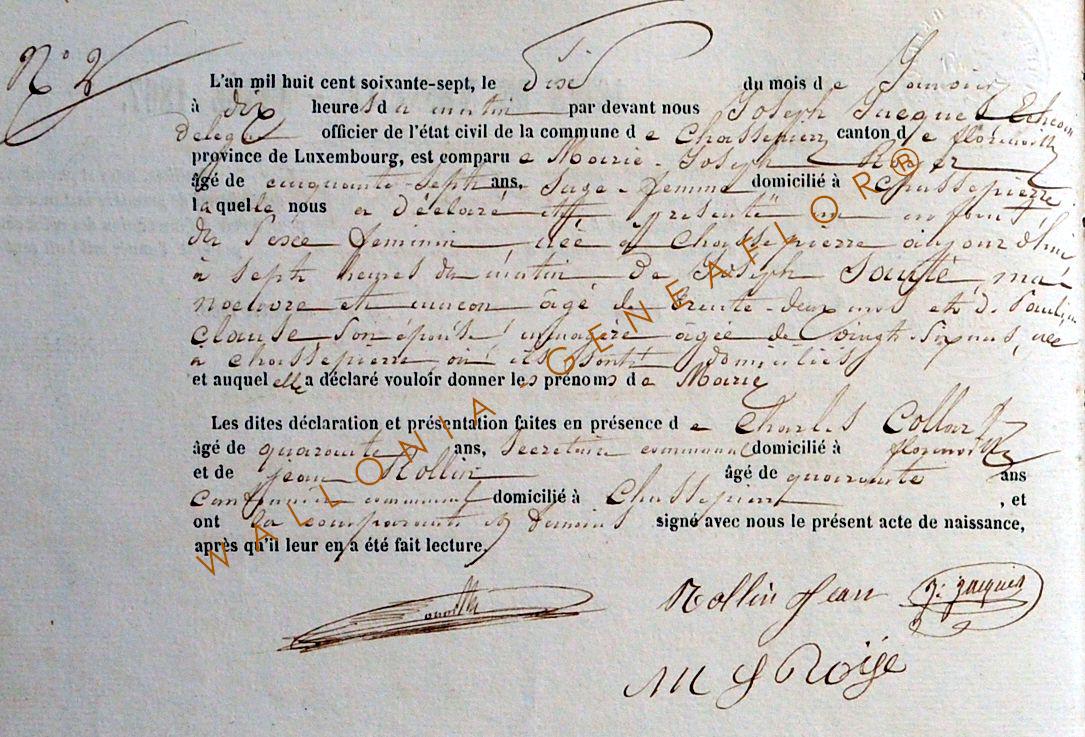 N° 2
L'an mil huit cent soixante-sept, le Dix du mois de Janvier
à dix heures du matin par devant nous Joseph Jacques Echevin
Delegué officier de l'état civil de la commune de Chassepierre canton de florenville
province de Luxembourg, est comparue Marie-Joseph
âgé de cinquante-sept ans, Sage-femme domicilié à Chassepierre
laquelle nous a déclaré et présenté un enfant
du sexe feminin, née à Chassepierre aujourd'hui
à sept heures du matin de Joseph Santé, ma
noeuvre et maçon âgé de trente-deux ans et d. Pauline
Clause son épouse, âgée de vingt-six ans, née
à Chassepierre où ils sont domiciliés
et auquel elle a déclaré vouloir donner les prénoms de Marie
Les dites déclaration et présentation faites en présence de Charles Collar
âgé de quarante ans, Secrétaire communal domicilié à florenville
et de jean Rollin âgé de quarante ans
Cantonnier communal domicilié à Chassepierre , et
ont la comparante et temoins signé avec nous le présent acte de naissance,
après qu'il leur en a été fait lecture.
Rollin Jean J: Jacques
M J
WALLONIA - GENEAFLOR®